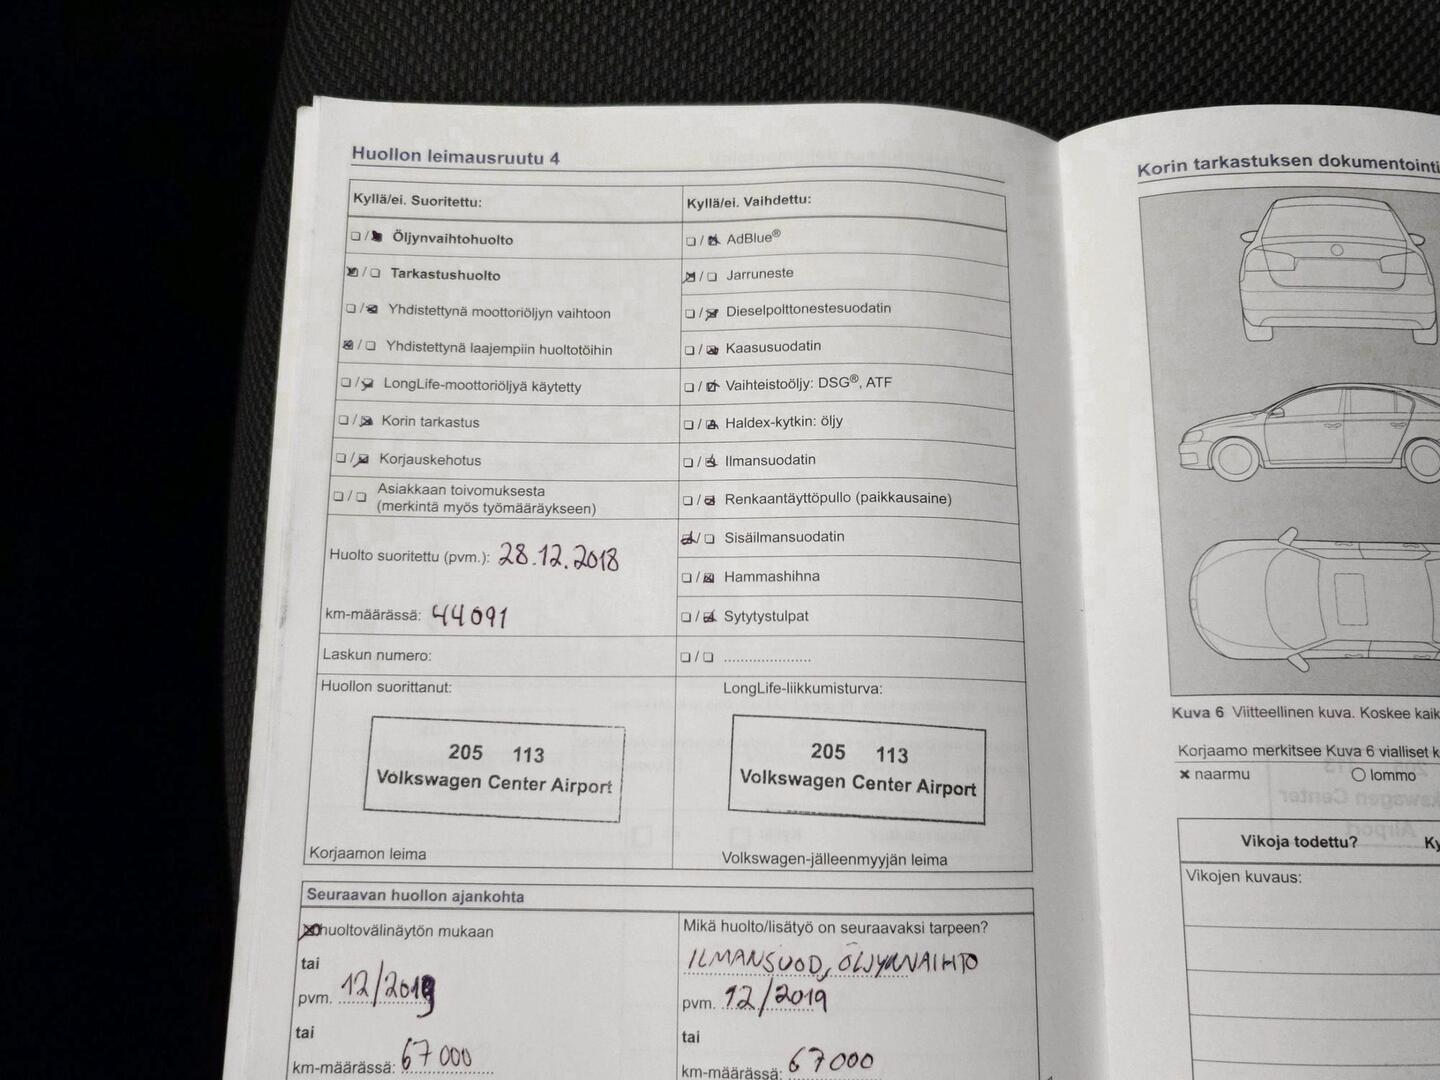 Huollon leimausruutu 4
Kyllä/ei. Suoritettu:
Öljynvaihtohuolto
Tarkastushuolto
Yhdistettynä moottoriöljyn vaihtoon
Yhdistettynä laajempiin huoltotöihin
LongLife-moottoriöljyä käytetty
Korin tarkastus
Korjauskehotus
Asiakkaan toivomuksesta
(merkintä myös työmääräykseen)
Huolto suoritettu (pvm.): 28.12.2018
km-määrässä: 44091
Laskun numero:
Huollon suorittanut:
205 113
Volkswagen Center Airport
Korjaamon leima
Kyllä/ei. Vaihdettu:
AdBlue®
Jarruneste
Dieselpolttonestesuodatin
Kaasusuodatin
Vaihteistoöljy: DSG®, ATF
Haldex-kytkin: öljy
Ilmansuodatin
Renkaantäyttöpullo (paikkausaine)
Sisäilmansuodatin
Hammashihna
Sytytystulpat
LongLife-liikkumisturva:
205 113
Volkswagen Center Airport
Volkswagen-jälleenmyyjän leima
Seuraavan huollon ajankohta
huoltovälinäytön mukaan
tai
pvm. 12/2019
tai
km-määrässä: 67000
Mikä huolto/lisätyö on seuraavaksi tarpeen?
ILMANSUOD, ÖLJYNVAIHTO
pvm. 12/2019
tai
km-määrässä: 67000
Korin tarkastuksen dokumentointi
Kuva 6 Viitteellinen kuva. Koskee kaik
Korjaamo merkitsee Kuva 6 vialliset k
× naarmu
○ lommo
Vikoja todettu? Ky
Vikojen kuvaus: